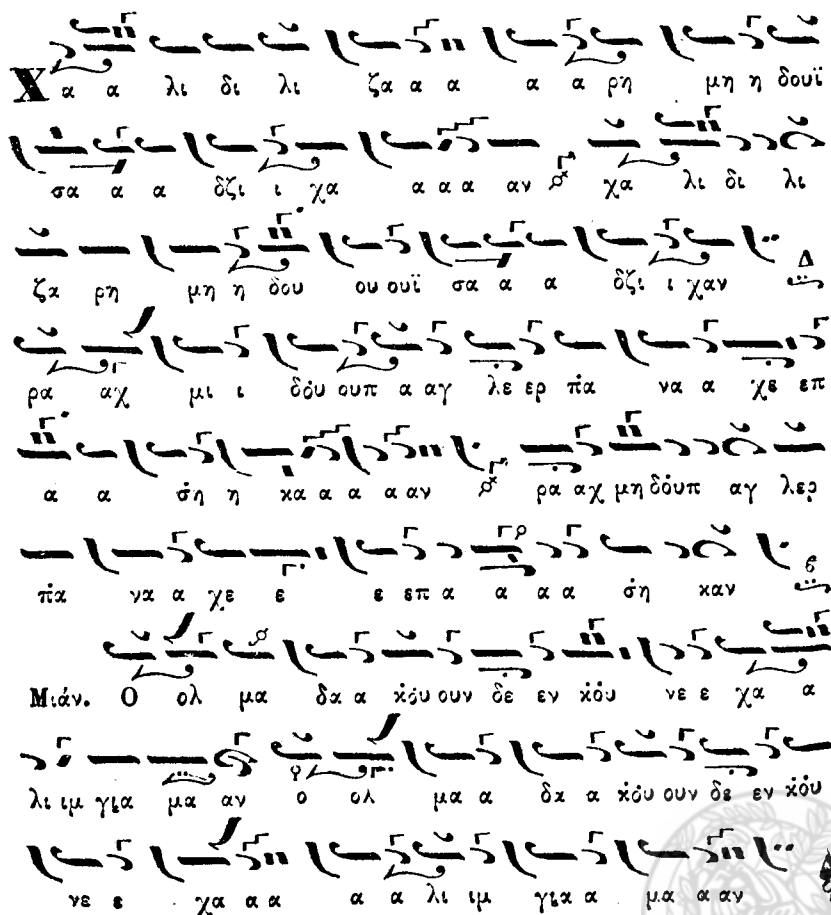 Χ α α λι δι λι ζα α α α α ρη μη η δουϊ
σα α α δζι ι χα α α α αν χα λι δι λι
ζα ρη μη η δου ου ουϊ σα α α δζι ι χαν Δ
ρα αχ μι ι δόυ ουπ α αγ λε ερ π̇α να α χε επ
α α σ̇η η κα α α α αν ρα αχ μη δόυπ αγ λερ
π̇α να α χε ε ε επ α α α α σ̇η καν
Μιάν. Ο ολ μα δα α κ̇όυ ουν δε εν κ̇όυ νε ε χα α
λι ιμ για μα αν ο ολ μα α δα α κ̇όυ ουν δε εν κ̇όυ
νε ε χα α α α α λι ιμ για α μα α αν